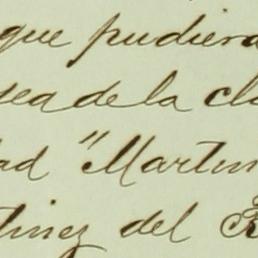 que pudiera
sea de la cla
dad "Martin
tinez del R